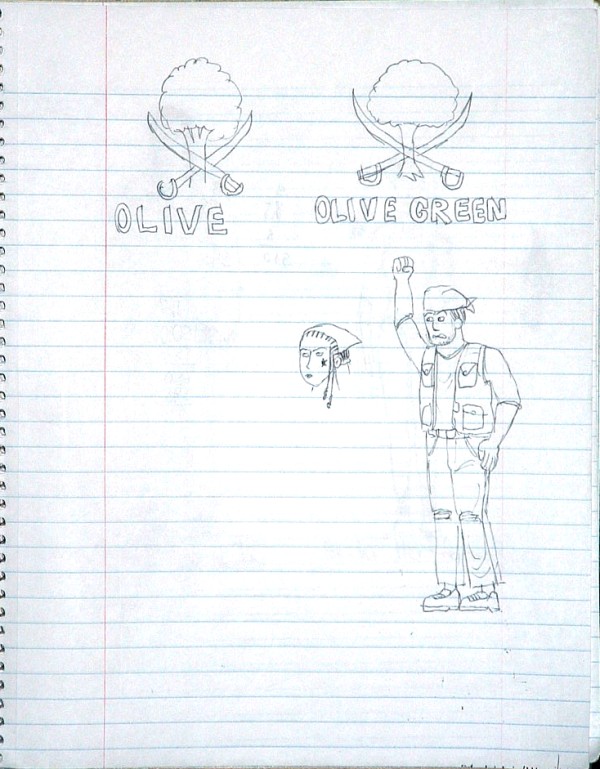 OLIVE
OLIVE GREEN